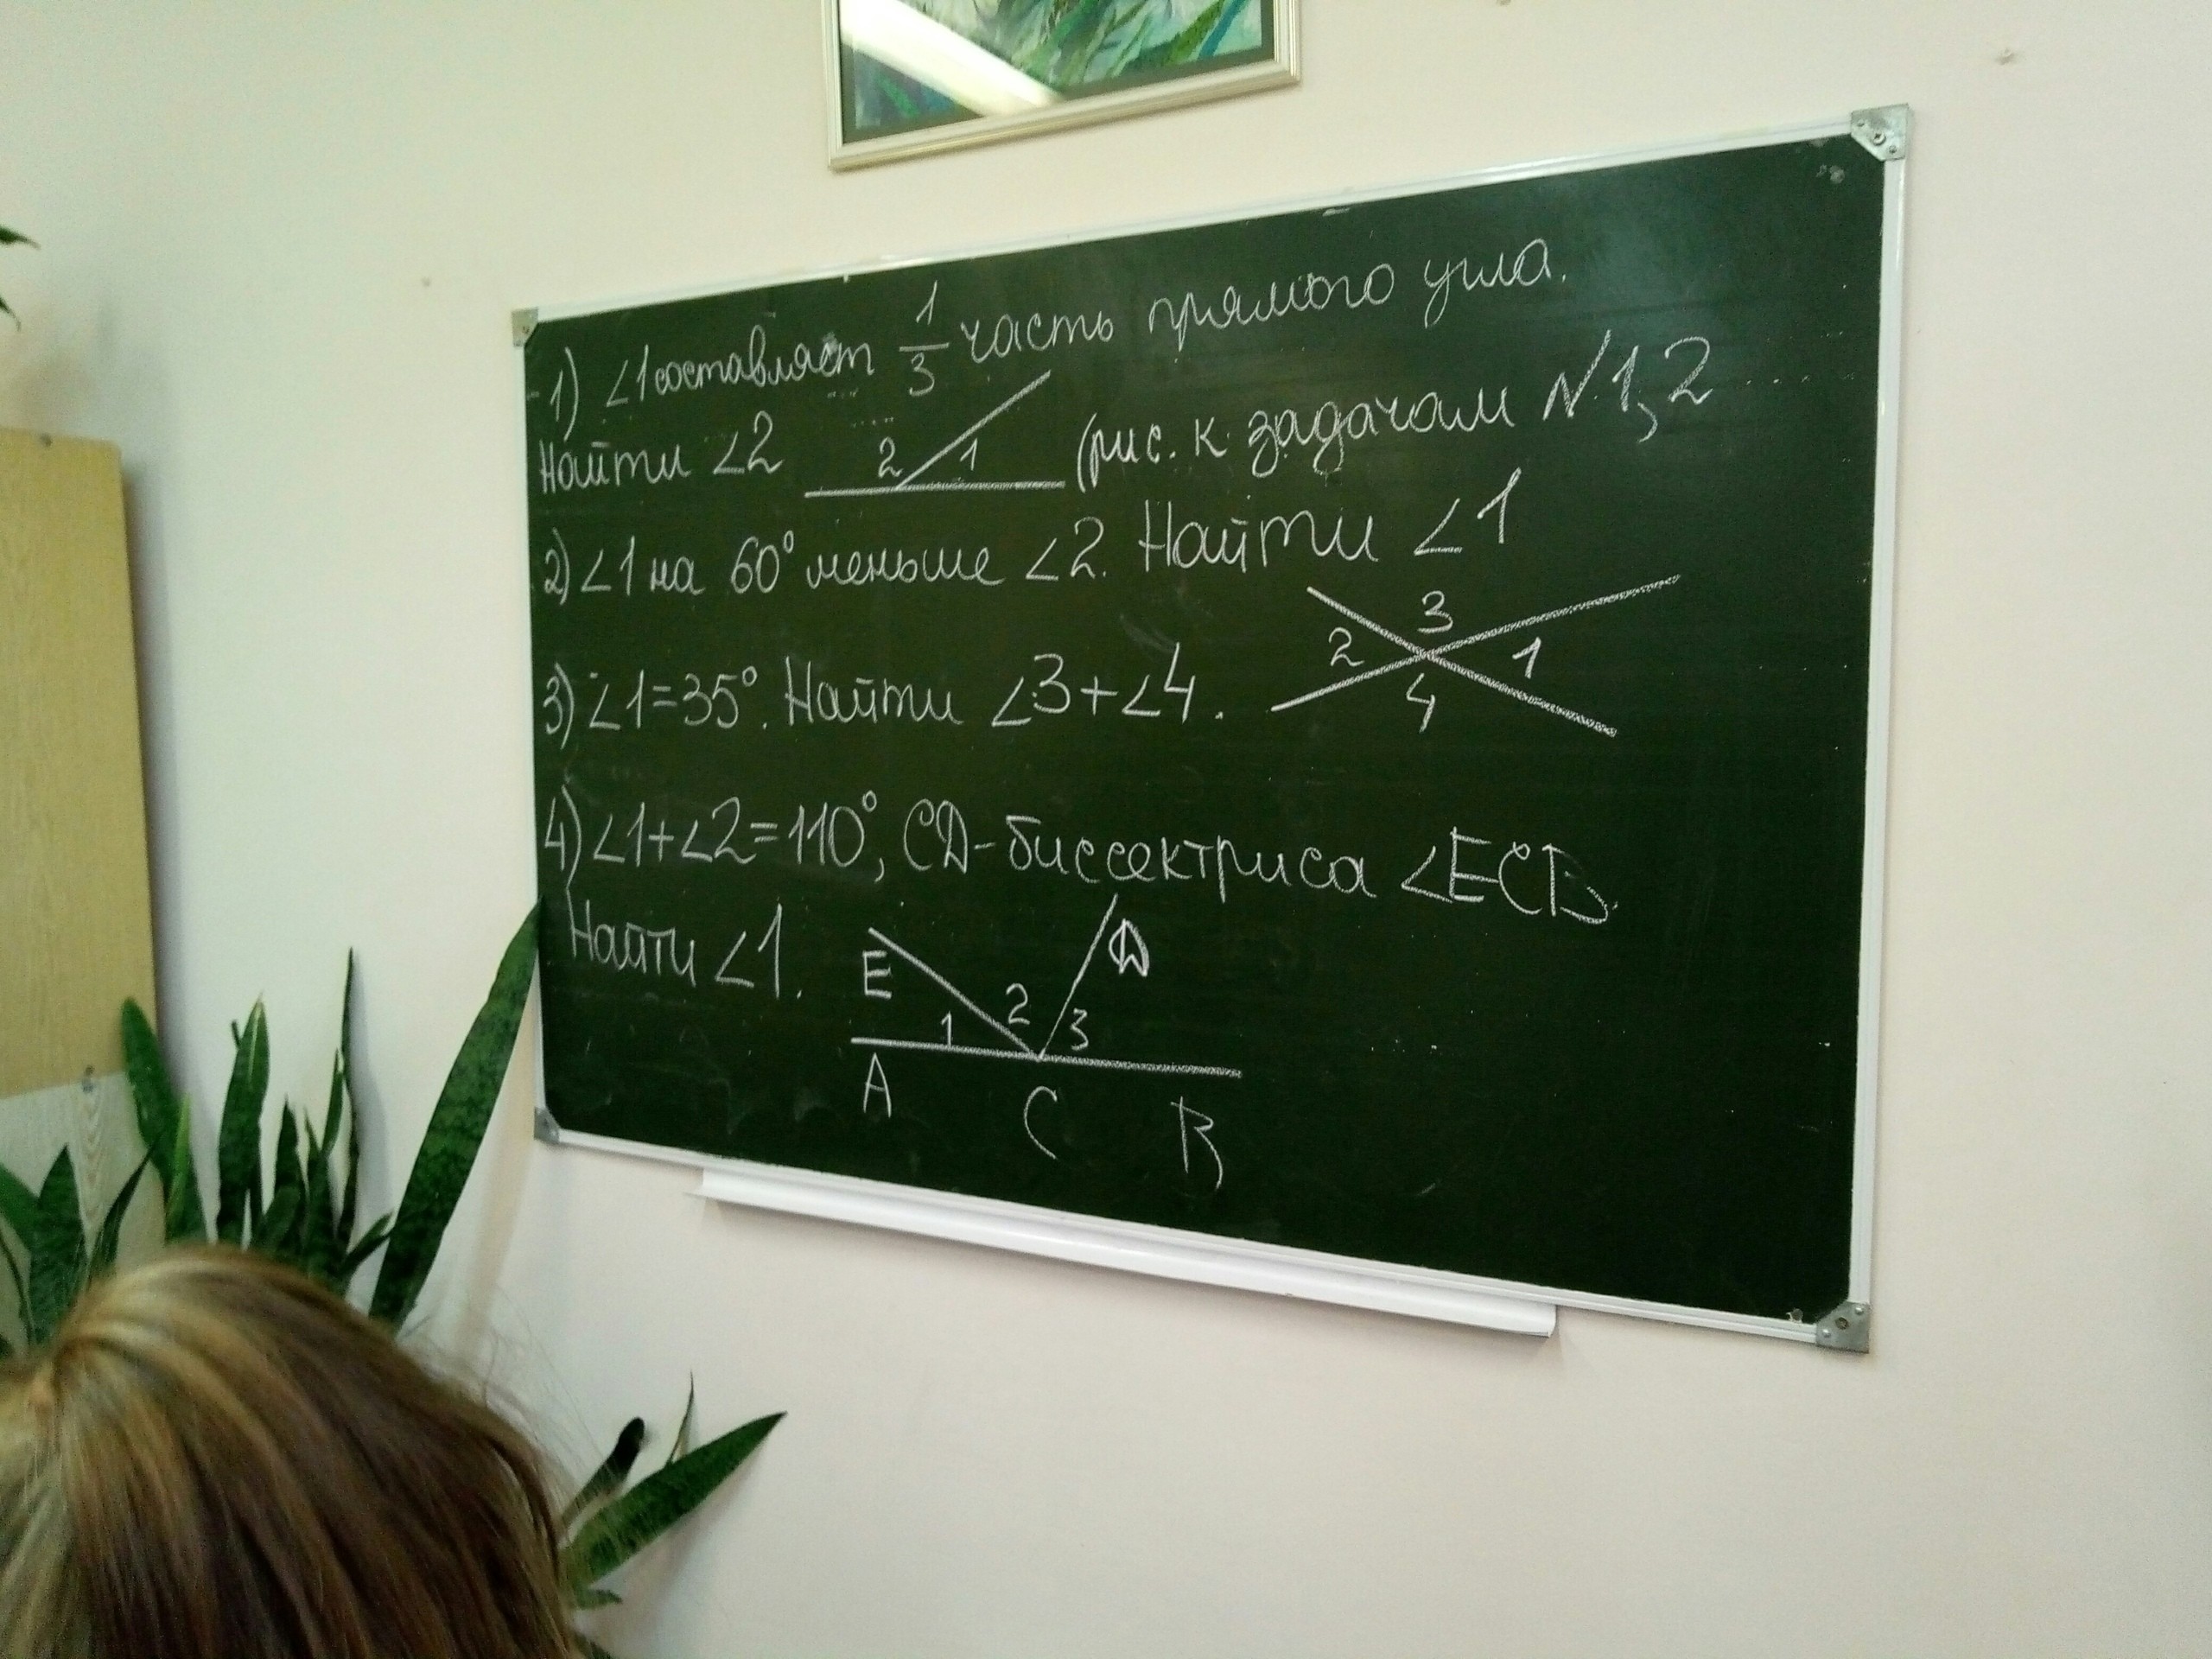 1) ∠1 составляет 1/3 часть прямого угла.
Найти ∠2
2 1
(рис. к задачам №1,2
2) ∠1 на 60° меньше ∠2. Найти ∠1
3) ∠1=35°. Найти ∠3+∠4.
3
2 1
4
4) ∠1+∠2=110°, CD-биссектриса ∠ECB.
Найти ∠1.
E D
1 2 3
A C B